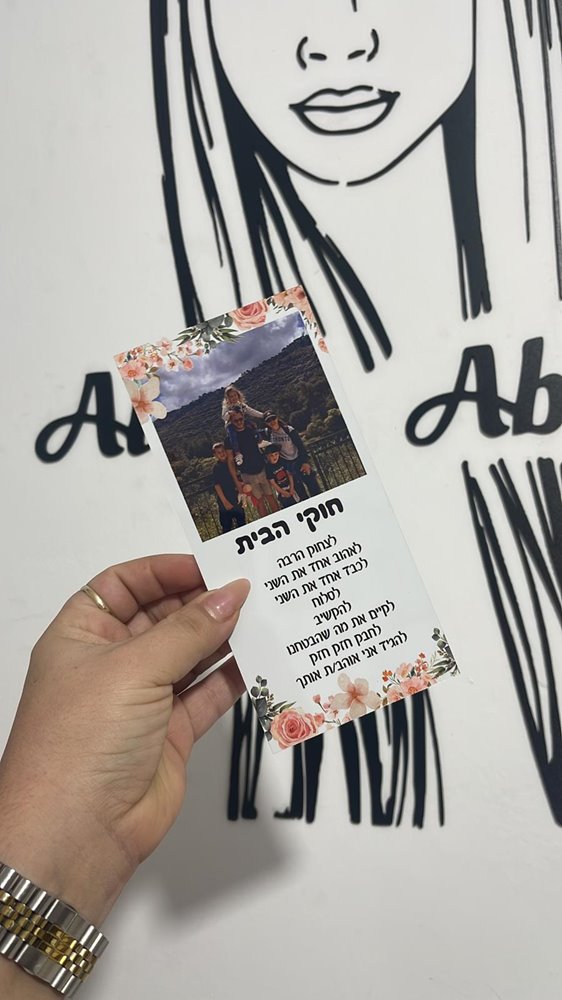 Ab
Ab
חוקי הבית
לצחוק הרבה
לאהוב אחד את השני
לכבד אחד את השני
לסלוח
להקשיב
לקיים את מה שהבטחנו
לחבק חזק חזק
להגיד אני אוהב/ת אותך